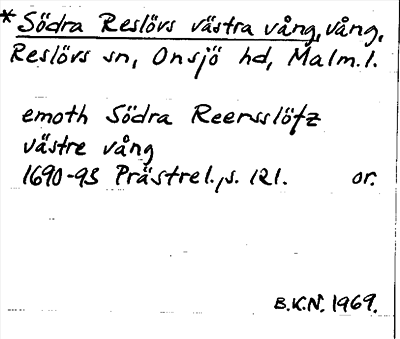 * Södra Reslövs västra vång, vång,
Reslövs sn, Onsjö hd, Malm.l.
emoth Södra Reersslöfz
västre vång
1690-93 Prästrel., s. 121. or.
B.K.N. 1969.